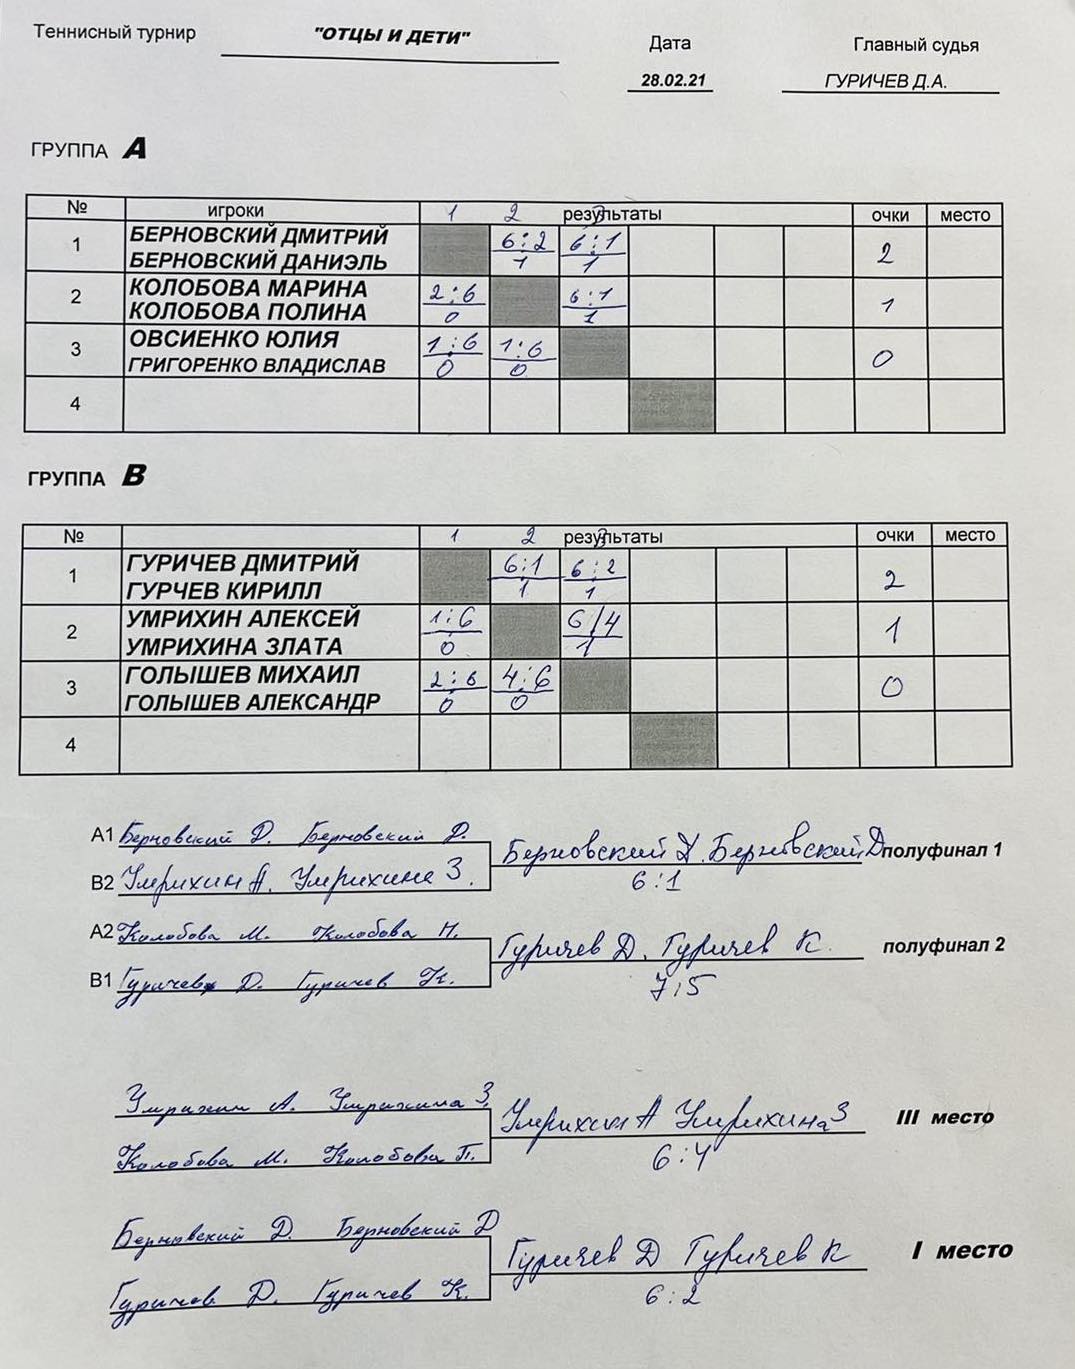 Теннисный турнир "ОТЦЫ И ДЕТИ" Дата Главный судья
28.02.21 ГУРИЧЕВ Д.А.
ГРУППА А
№ игроки 1 2 результаты 3 очки место
1 БЕРНОВСКИЙ ДМИТРИЙ 6:2 6:1 2
БЕРНОВСКИЙ ДАНИЭЛЬ 1 1
2 КОЛОБОВА МАРИНА 2:6 6:1 1
КОЛОБОВА ПОЛИНА 0 1
3 ОВСИЕНКО ЮЛИЯ 1:6 1:6 0
ГРИГОРЕНКО ВЛАДИСЛАВ 0 0
4
ГРУППА В
№ 1 2 результаты 3 очки место
1 ГУРИЧЕВ ДМИТРИЙ 6:1 6:2 2
ГУРЧЕВ КИРИЛЛ 1 1
2 УМРИХИН АЛЕКСЕЙ 1:6 6/4 1
УМРИХИНА ЗЛАТА 0 1
3 ГОЛЫШЕВ МИХАИЛ 2:6 4:6 0
ГОЛЫШЕВ АЛЕКСАНДР 0 0
4
А1 Берновский Д. Берновский Д.
Берновский Д. Берновский Д полуфинал 1
В2 Умрихин А. Умрихина З.
6:1
А2 Колобова М. Колобова П.
Гуричев Д. Гуричев К. полуфинал 2
В1 Гуричев Д. Гуричев К.
7:5
Умрихин А. Умрихина З.
Умрихин А Умрихина З III место
Колобова М. Колобова П.
6:4
Берновский Д. Берновский Д
Гуричев Д Гуричев К I место
Гуричев Д. Гуричев К.
6:2